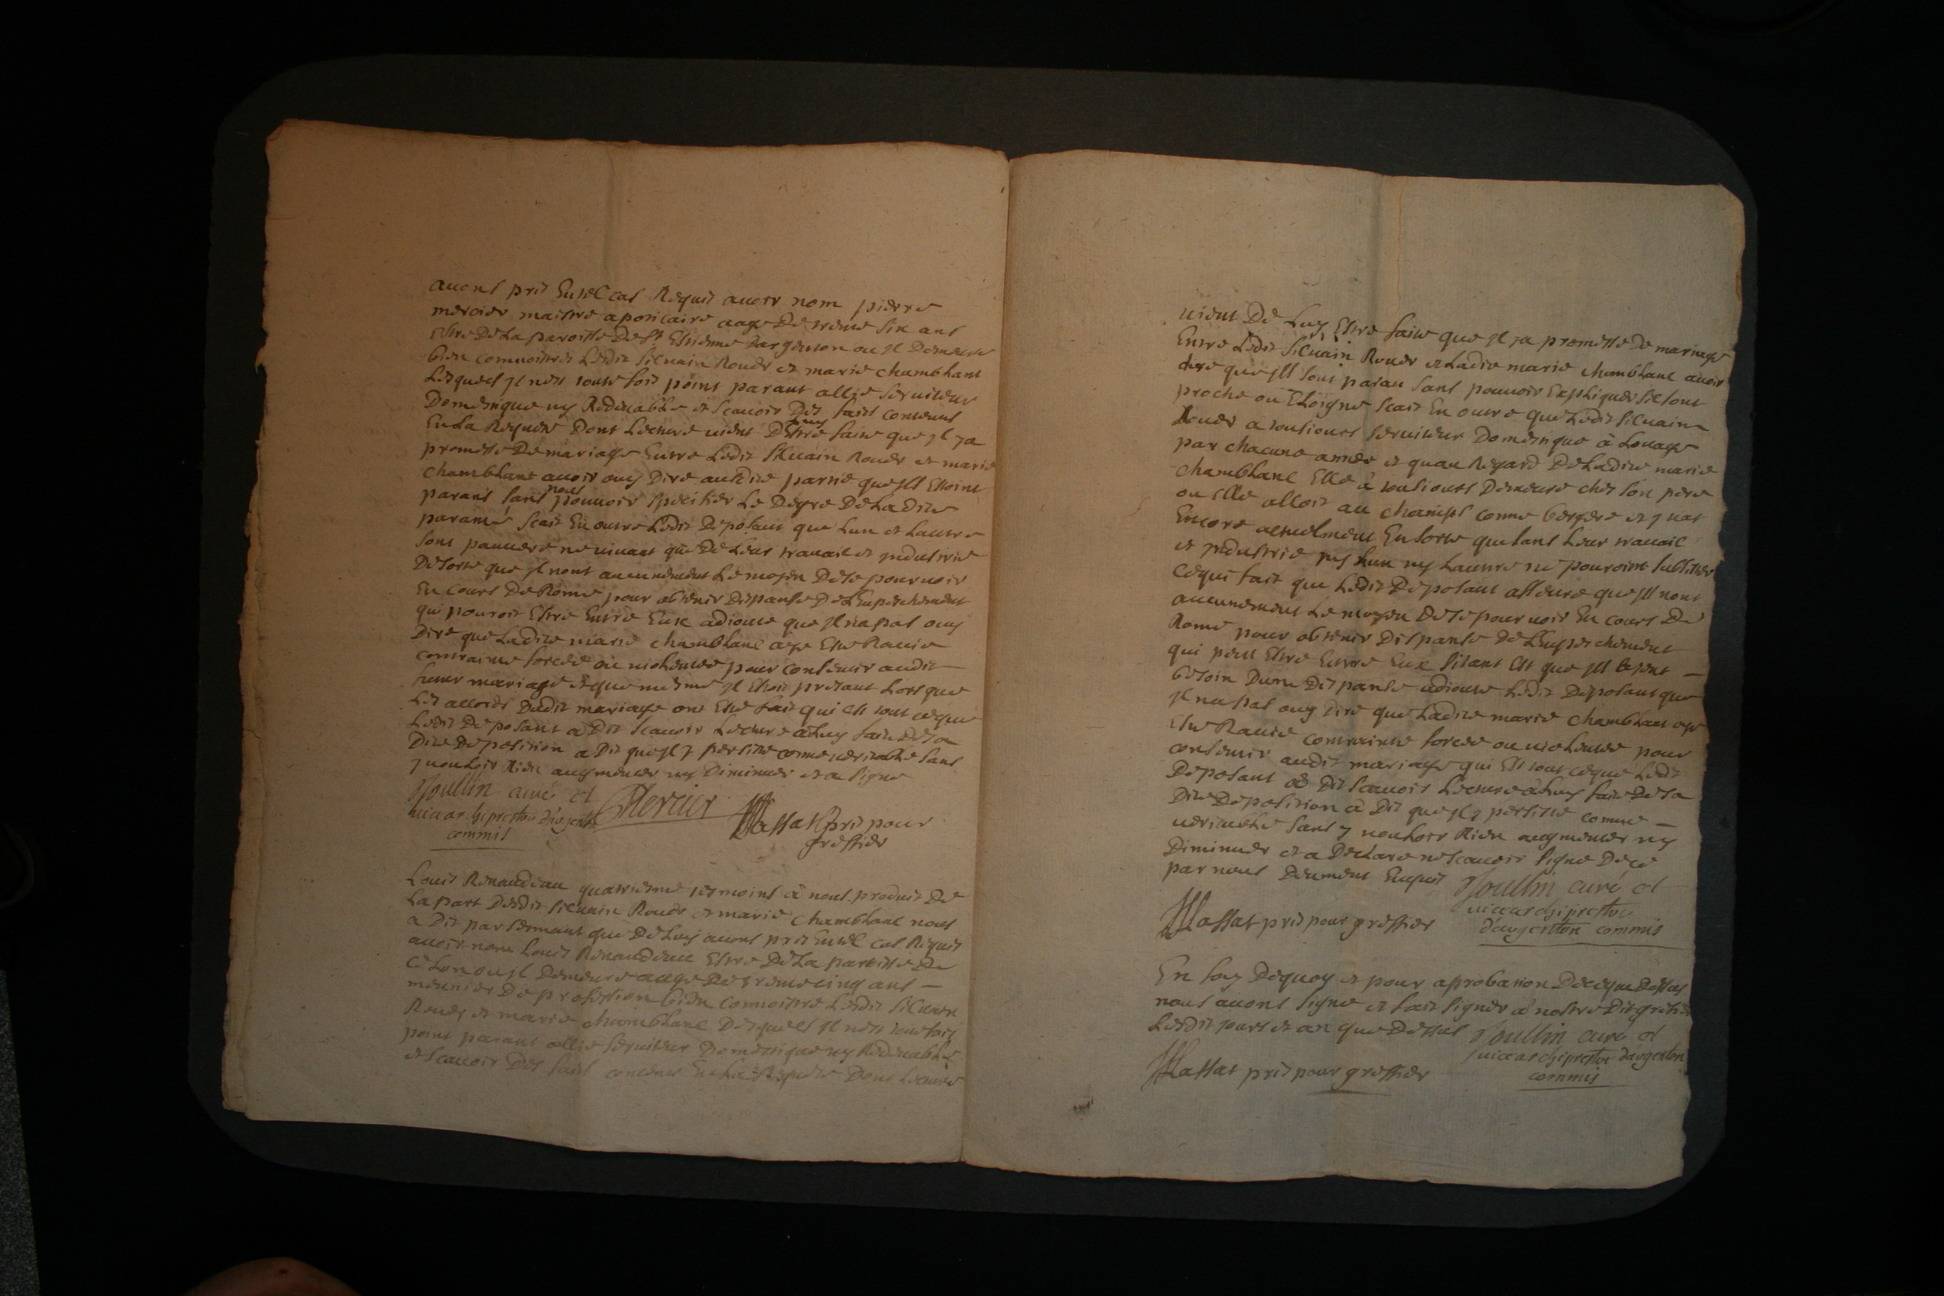 avons pris En tel cas Requis avoir nom pierre
mercier maistre apoticaire aage De trente six ans
Estre De La paroisse De St Estienne Dargenton ou jl Demeure
bien connoistre Ledit Silvain Rouer et marie chamblant
Lesquels jl nest toute fois point parant allie serviteur
Domestique ny Redevable et scavoir Des faits contenus
En La Requeste Dont Lecture vient D luy Estre faite que jl ya
promesse De mariage Entre Ledit Silvain Rouer et marie
chamblant avoir ouy Dire audite partie quejls Estoint
parans sans pouvoir specifier Le Degre De La Dite
parante scait En outre Ledit Deposant que Lun et Lautre
sont pauvere ne vivant que De Leur travail et jndustrie
De sorte que jl nont aucunement Le moyen De se pourvoir
En cours De Rome pour obtenir Dispanse De Lenpechement
qui pouroit Estre Entre Eux adjoute que jl na pas ouy
Dire que Ladite marie chamblant aye Este Ravie
contrainte forcee ou violentee pour consentir audit
futur mariage et que mesme jl Estoit presant Lors que
Les accords Dudit mariage ont Este fait qui Est tout ceque
Ledit Deposant a Dit scavoir Lecture a Luy faite De sa
Dite Deposition a Dit quejl y persiste come veritable sans
y vouloir Rien augmenter ny Diminuer et a signe
Poullin curé et
vicearchiprestre d'argenton
commis
Mercier
Massat pris pour
greffier
Louis Renaudeau quatriesme tesmoint a nous produit De
La part Desdit silvain Rouer et marie chamblant nous
a Dit par serment que De Luy avons pris En tel cas Requis
avoir nom Louis Renaudeau Estre De La paroisse De
Celon ou jl Demeure aage De trente cinq ans
meunier De profession bien connoistre Ledit silvain
Rouer et marie chamblant Desquels jl nest toute fois
point parant allie serviteur Domestique ny Redevable
et scavoir Des faits contenus En La Requeste Dont Lecture
vient De Luy Estre faite que jl ya promesse De mariage
Entre Ledit Silvain Rouer et Ladite marie chamblant avoir
dire quejls sont parans sans pouvoir Expliquer sils sont
proche ou Eloigne scait En outre que Ledit silvain
Rouer a tousiours serviteur Domestique à Louage
par chacune année et quau Regard De Ladite marie
chamblant Elle a tousiours Demeure ches son pere
ou Elle alloit au champs comme bergere et y vat
Encore actuelment En sorte que sans Leur travail
et jndustrie ny Lun ny Lautre ne pouroint subsister
cequi fait que Ledit Deposant asseure quejls nont
aucunement Le moyen De se pourvoir En cours De
Rome pour obtenir Dispanse de Lenpeschement
qui peut Estre Entre Eux sitant Est quejls Ayent
besoin Dune Dispanse adjoute Ledit Deposant que
jl na pas ouy dire que Ladite marie chamblant aye
Este Ravie contrainte forcee ou violentee pour
consentir audit mariage qui Est tout ceque Ledit
Deposant a Dit scavoir Lecture a Luy faite De sa
Dite Deposition a Dit quejl y persiste comme
veritable sans y vouloir Rien augmenter ny
Diminuer et a Declare ne scavoir signe De ce
par nous Deument Enquis
Poullin curé et
vicearchiprestre
d'argenton commis
Massat pris pour greffier
En foy Dequoy et pour aprobation De ceque Dessus
nous avons signe et fait signer a nostre Dit greffier
Lesdit jours et an que Dessus
Poullin curé et
vicearchiprestre d'argenton
commis
Massat pris pour greffier